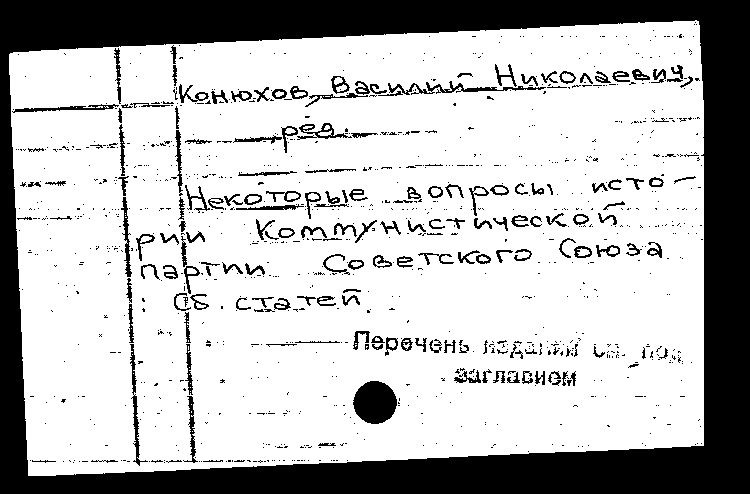 Конюхов, Василий Николаевич,
ред.
Некоторые вопросы исто-
рии Коммунистической
партии Советского Союза
: Сб. статей.
Перечень изданий см. под
заглавием